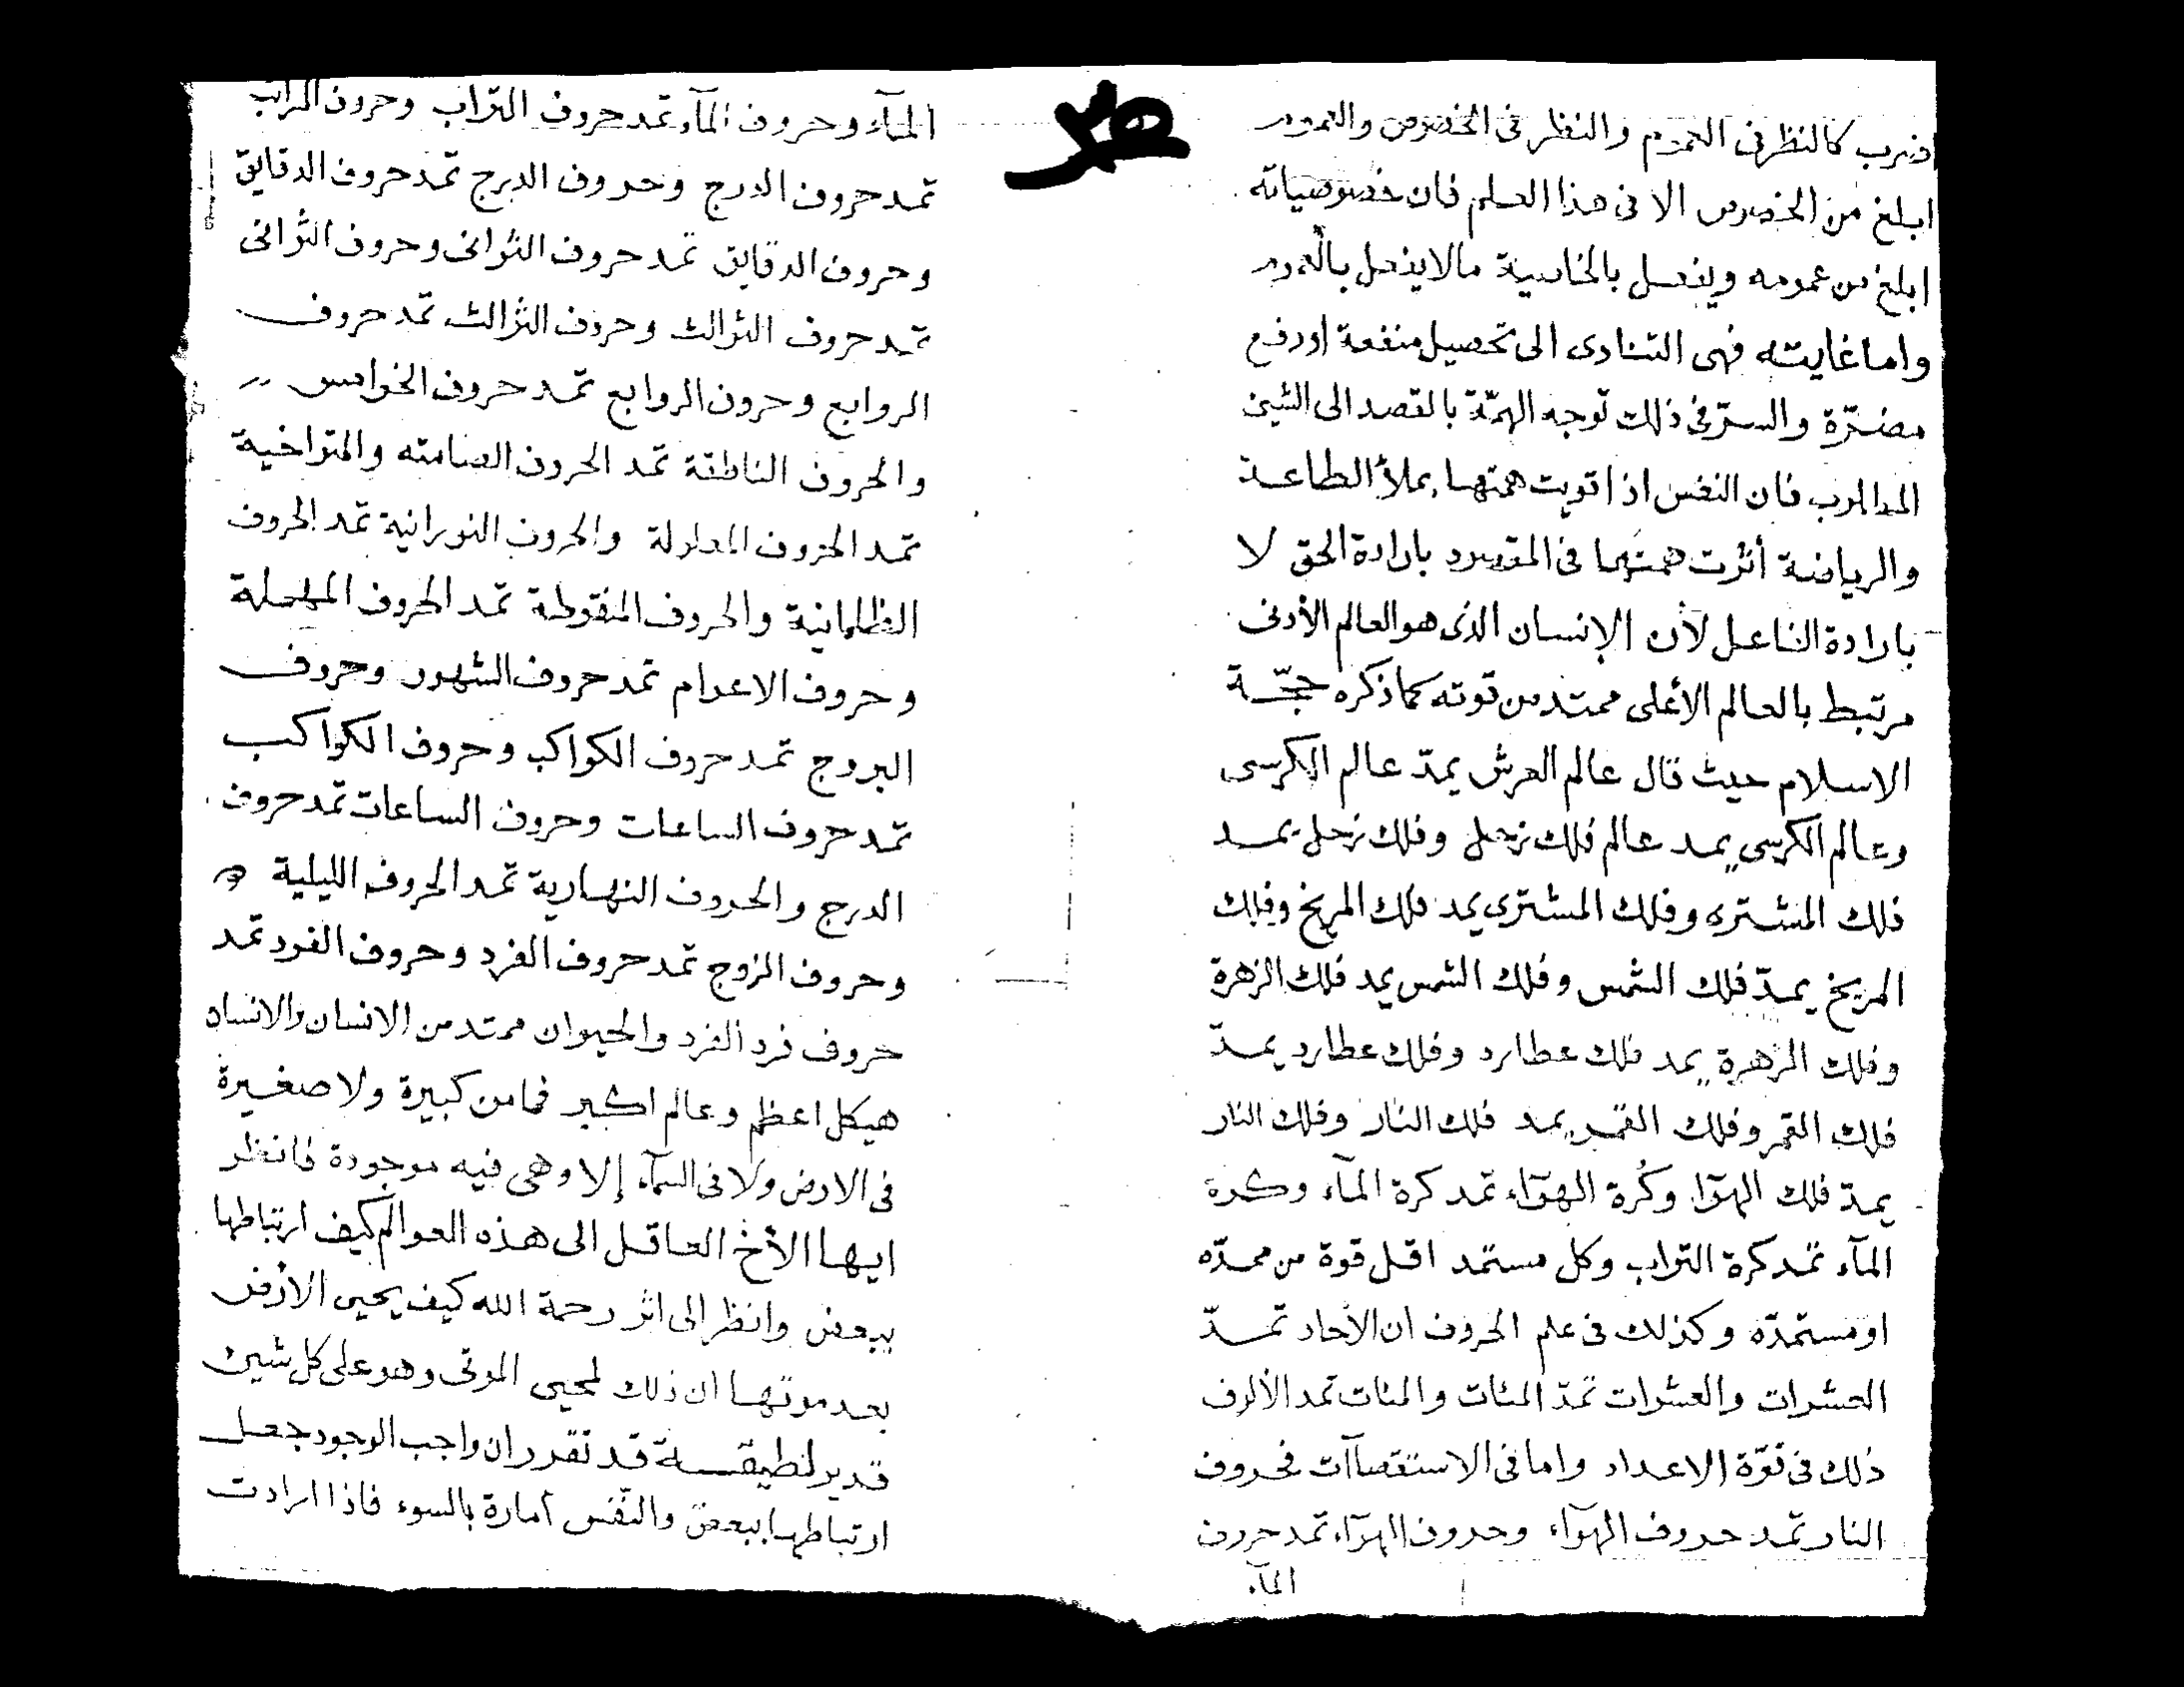 ضرب كالنظر فى العموم والنظر فى الخصوص والعموم
ابلغ من الخصوص الا فى هذا العلم فان خصوصياته
ابلغ من عمومه ويفعل بالخاصية مالا يفعل بالعموم
واما غايته فهى التنادى الى تحصيل منفعة او دفع
مضرّة والسرّ فى ذلك توجه الهمّة بالقصد الى الشيئ
المطلوب فان النفس اذا قويت همتها بملأ الطاعة
والرياضة أثرت همتها فى المقصود بارادة الحق لا
بارادة الفاعل لأن الإنسان الذى هو العالم الأدنى
مرتبط بالعالم الأعلى ممتد من قوته كما ذكره حجّة
الاسلام حيث قال عالم العرش يمدّ عالم الكرسى
وعالم الكرسى يمد عالم فلك زحل وفلك زحل يمد
فلك المشترى وفلك المشترى يمد فلك المريخ وفلك
المريخ يمدّ فلك الشمس وفلك الشمس يمد فلك الزهرة
وفلك الزهرة يمد فلك عطارد وفلك عطارد يمدّ
فلك القمر وفلك القمر يمد فلك النار وفلك النار
يمدّ فلك الهوآء وكُرة الهوآء تمد كرة المآء وكرة
المآء تمد كرة التراب وكل مستمد اقل قوة من ممدّه
او مستمدّه وكذلك فى علم الحروف ان الأحاد تمدّ
العشرات والعشرات تمدّ المئات والمئات تمد الألوف
ذلك فى قوّة الاعداد واما فى الاستقصاآت فحروف
النار تمد حروف الهوآء وحروف الهوآء تمد حروف
المآء
المآء وحروف المآء تمد حروف التراب وحروف التراب
تمد حروف الدرج وحروف الدرج تمد حروف الدقايق
وحروف الدقايق تمد حروف الثوانى وحروف الثوانى
تمد حروف الثوالث وحروف الثوالث تمد حروف
الروابع وحروف الروابع تمد حروف الخوامس
والحروف الناطقة تمد الحروف الصامته والمتواخية
تمد الحروف المعلولة والحروف النورانية تمد الحروف
الظلمانية والحروف المنقوطة تمد الحروف المهملة
وحروف الاعوام تمد حروف الشهور وحروف
البروج تمد حروف الكواكب وحروف الكواكب
تمد حروف الساعات وحروف الساعات تمد حروف
الدرج والحروف النهارية تمد الحروف الليلية
وحروف الزوج تمد حروف الفرد وحروف الفرد تمد
حروف فرد الفرد والحيوان ممتد من الانسان والانسان
هيكل اعظم وعالم اكبر فما من كبيرة ولا صغيرة
فى الارض ولا فى السمآء إلا وهى فيه موجودة فانظر
ايها الأخ العاقل الى هذه العوالم كيف ارتباطها
ببعض وانظر الى اثر رحمة الله كيف يحيى الأرض
بعد موتها ان ذلك لمحيى الموتى وهو على كل شيئ
قدير لطيفة قد تقرر ان واجب الوجود جعل
ارتباطها ببعض والنّفس أمارة بالسوء فاذا ارادت